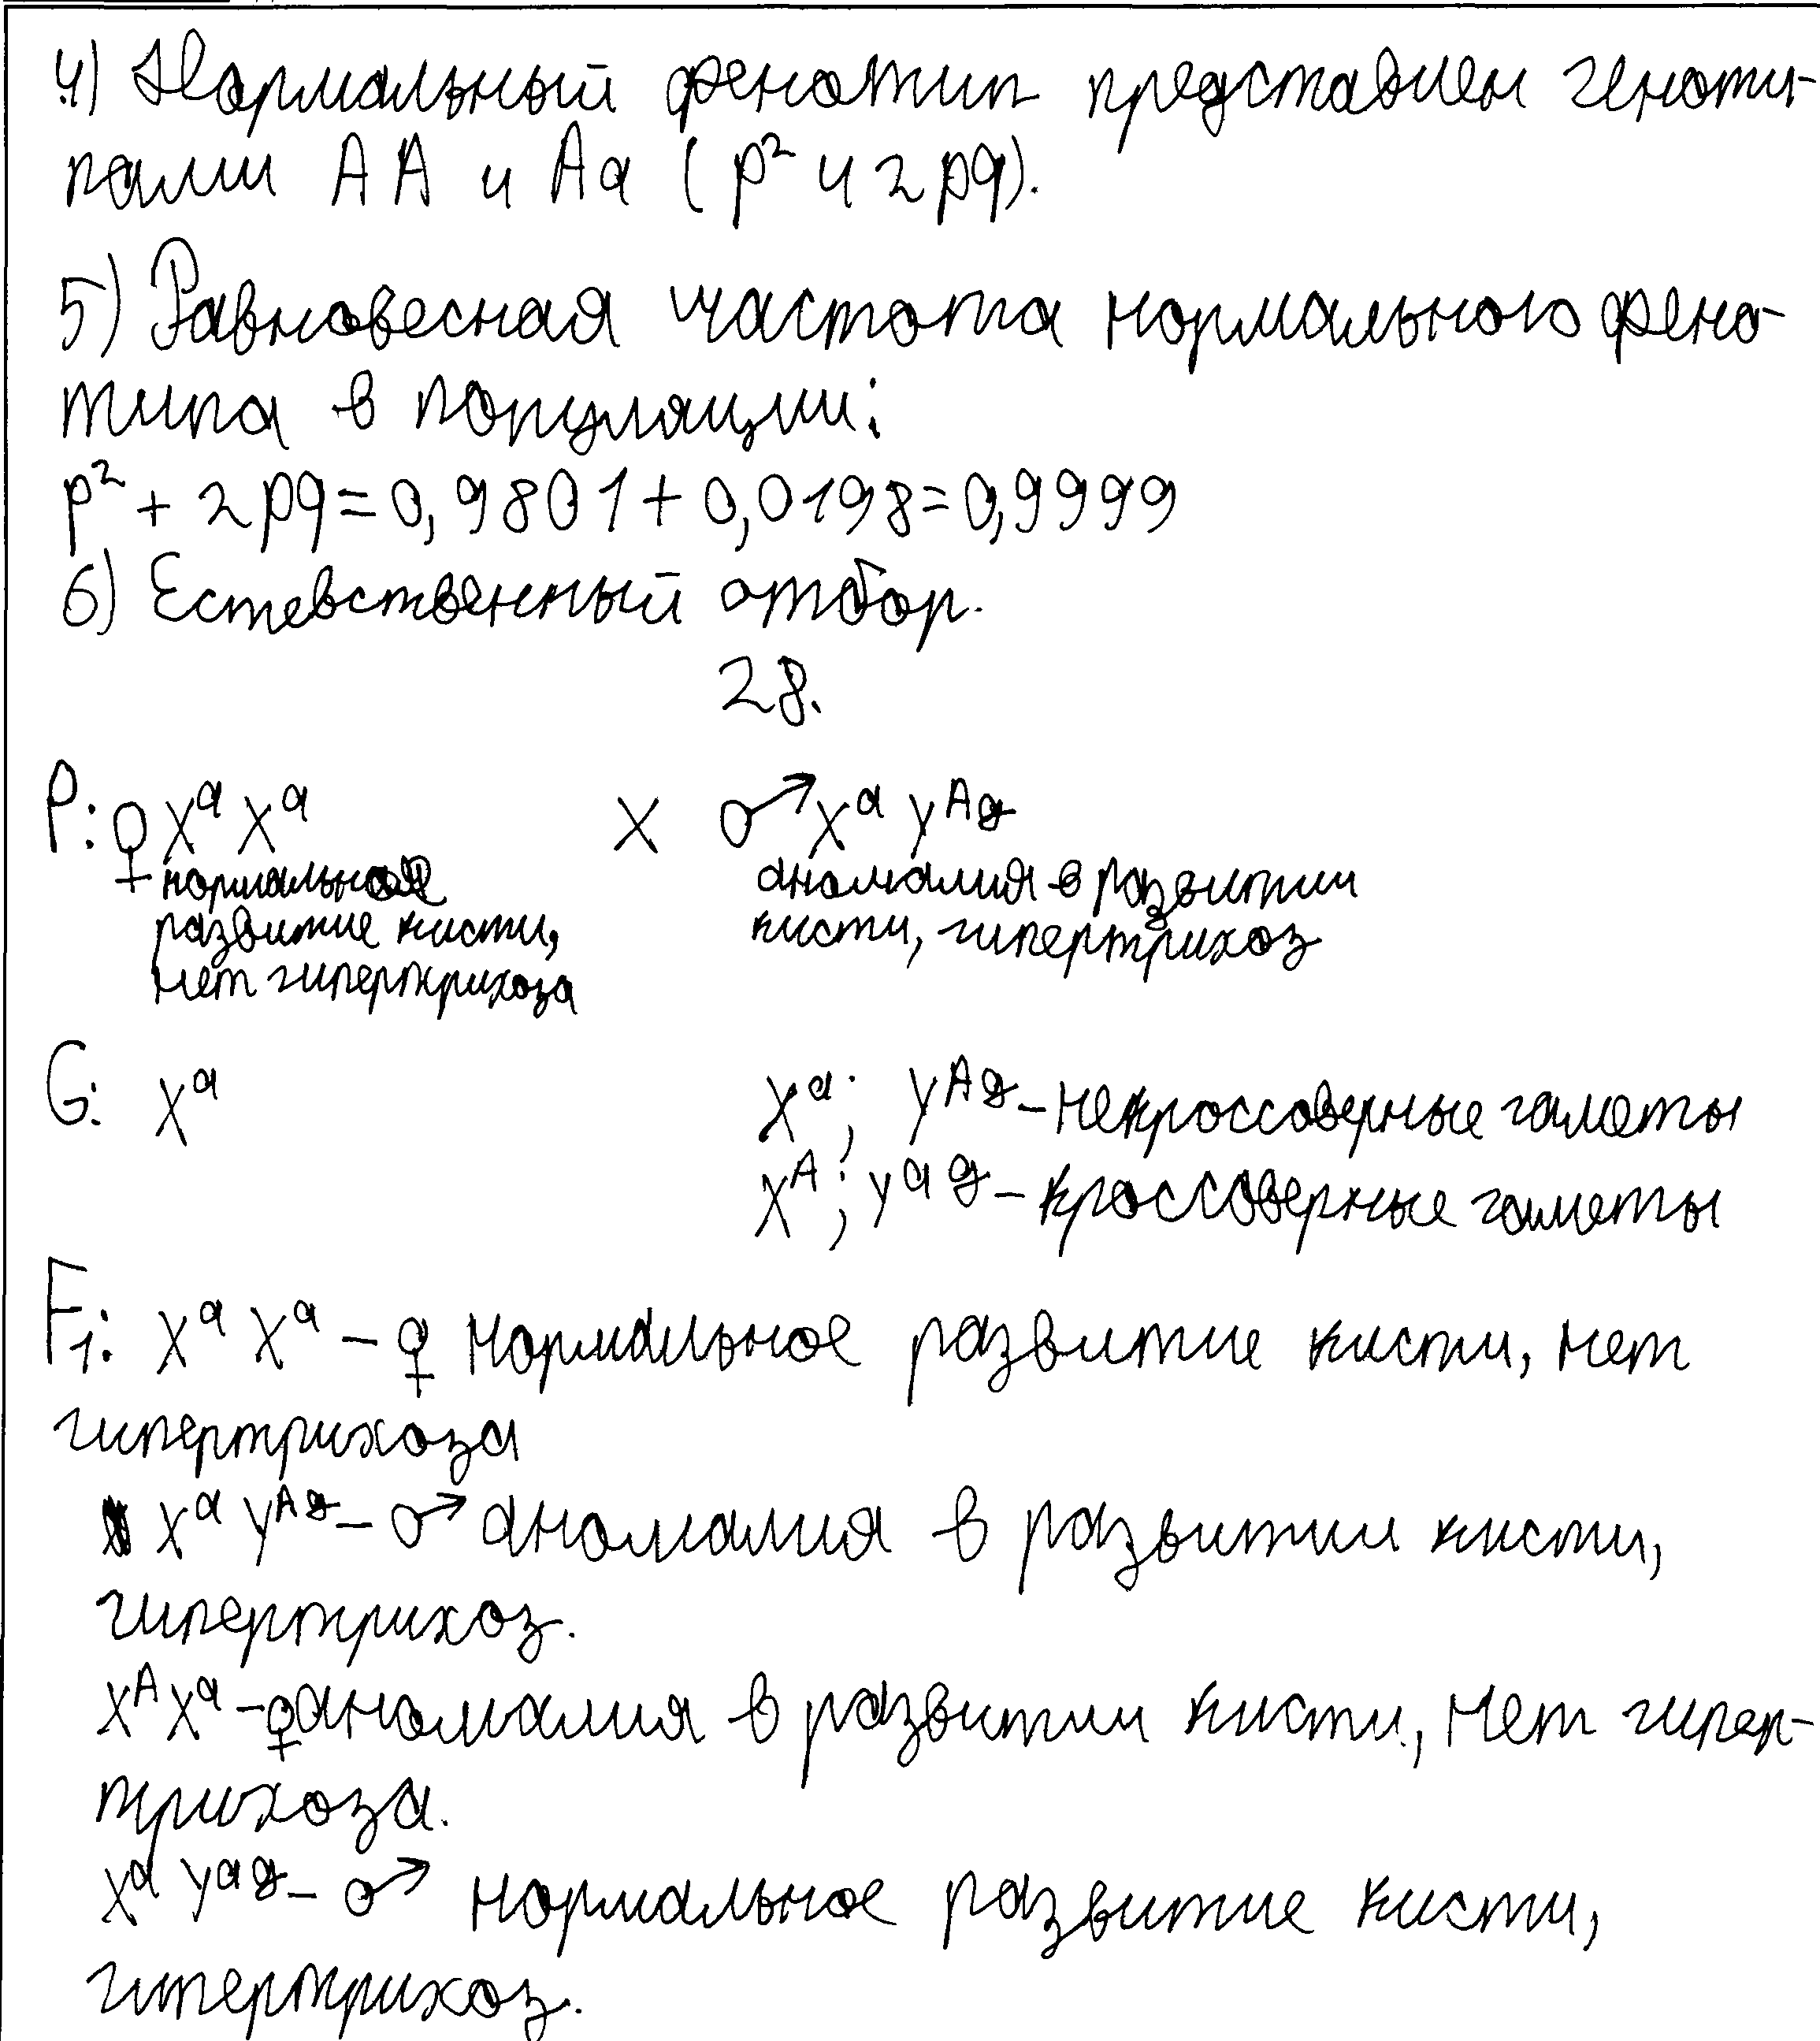 4) Нормальный фенотип представлен геноти-
пами АА и Аа (p² и 2pq).
5) Равновесная частота нормального фено-
типа в популяции:
p² + 2pq = 0,9801 + 0,0198 = 0,9999
6) Естевственный отбор.
28.
P: ♀ Xᵃ Xᵃ X ♂ Xᵃ Yᴬᵍ
нормальное аномалия в развитии
развитие кисти, кисти, гипертрихоз
нет гипертрихоза
G: Xᵃ Xᵃ; Yᴬᵍ – некроссоверные гаметы
Xᴬ; Yᵃᵍ – кроссоверные гаметы
F₁: Xᵃ Xᵃ – ♀ нормальное развитие кисти, нет
гипертрихоза
Xᵃ Yᴬᵍ – ♂ аномалия в развитии кисти,
гипертрихоз.
Xᴬ Xᵃ – ♀ аномалия в развитии кисти, нет гипер-
трихоза.
Xᵃ Yᵃᵍ – ♂ нормальное развитие кисти,
гипертрихоз.